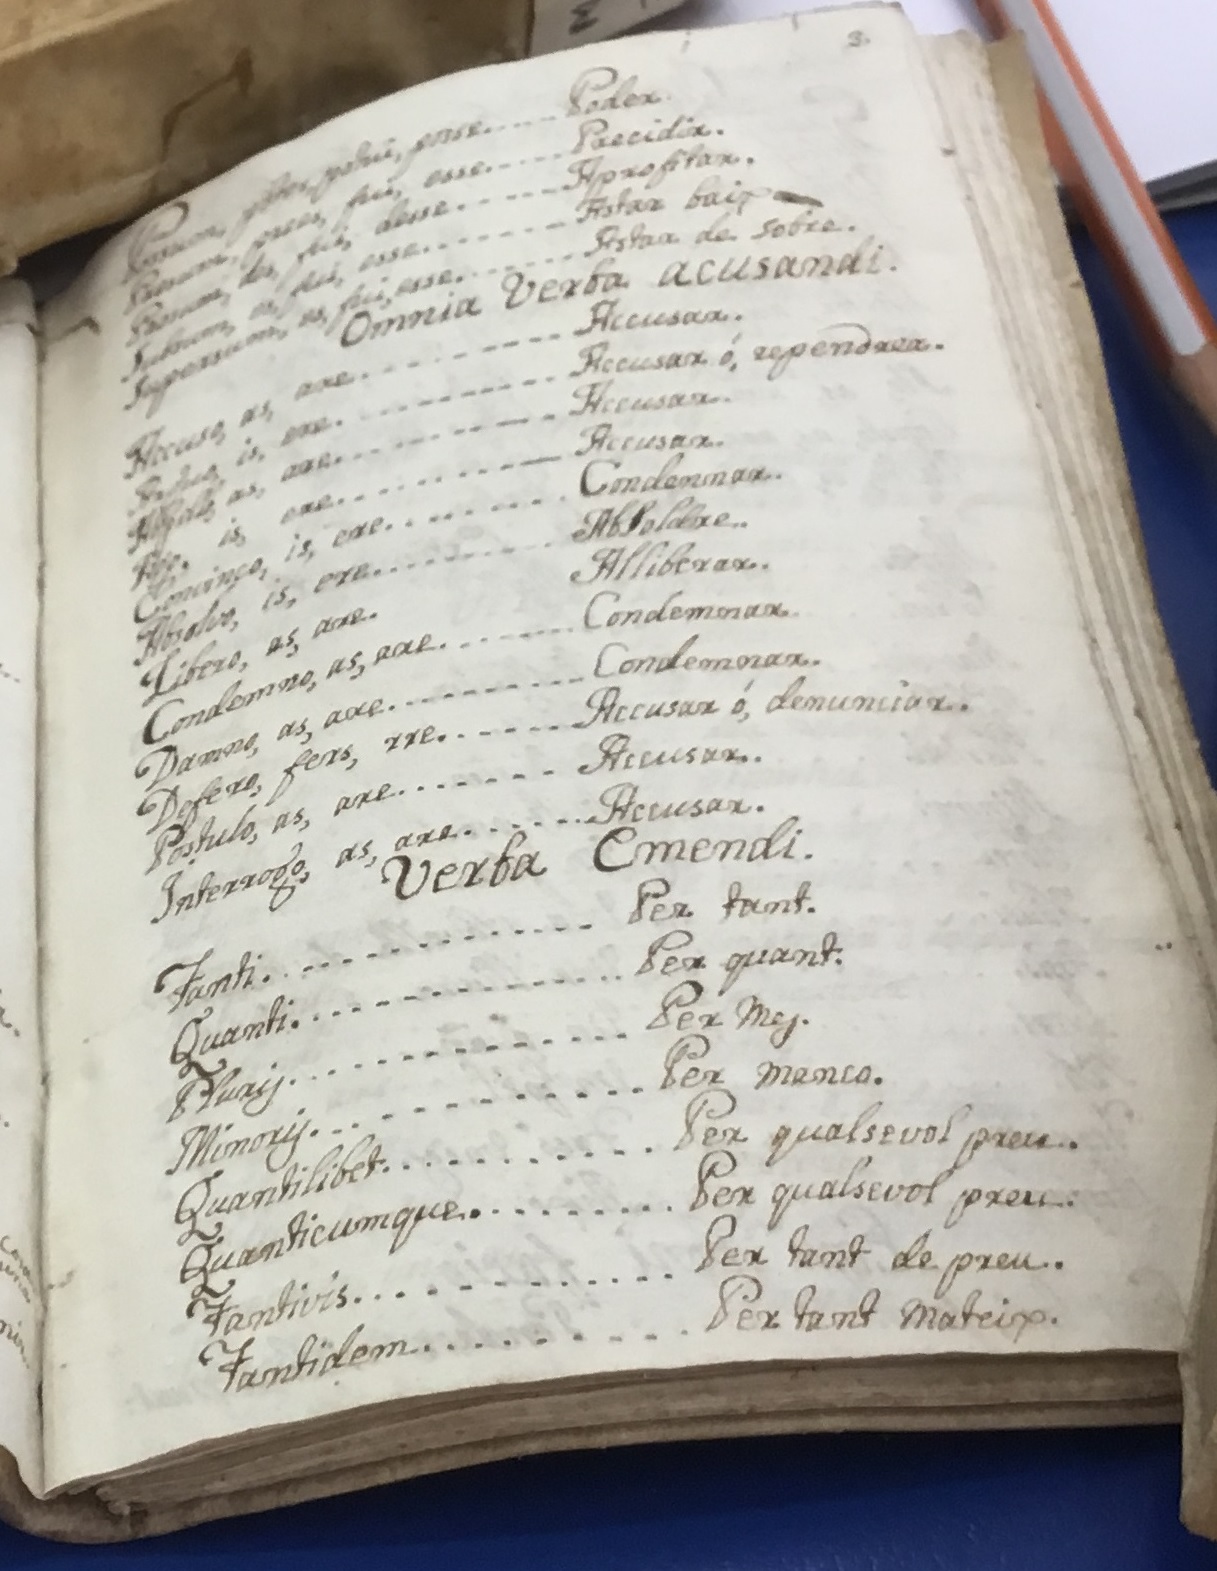 3.
Possum, potes, potui, posse..... Poder.
Praesum, praees, fui, esse..... Precidir.
Prosum, des, fui, desse....... Aprofitar.
Subsum, es, fui, esse....... Astar baix
Supersum, es, fui, esse....... Astar de sobre.
Omnia Verba acusandi.
Accuso, as, are.......... Accusar.
is, ere.......... Accusar ó, rependrer.
as, are.......... Accusar.
is, ere.......... Accusar.
Convinco, is, ere........ Condemnar.
Absolvo, is, ere......... Absoldre..
Libero, as, are. Alliberar..
Condemno, as, are....... Condemnar.
Damno, as, are......... Condemnar.
Defero, fers, rre....... Accusar ó, denunciar..
Postulo, as, are........ Accusar..
Interrogo, as, are....... Accusar.
Verba Emendi.
Tanti............... Per tant.
Quanti............... Per quant.
Plurij............... Per Mej.
Minorij.............. Per menco.
Quantilibet........... Per qualsevol preu..
Quanticumque......... Per qualsevol preu..
Tantivis............. Per tant de preu..
Tantidem........... Per tant Mateix.